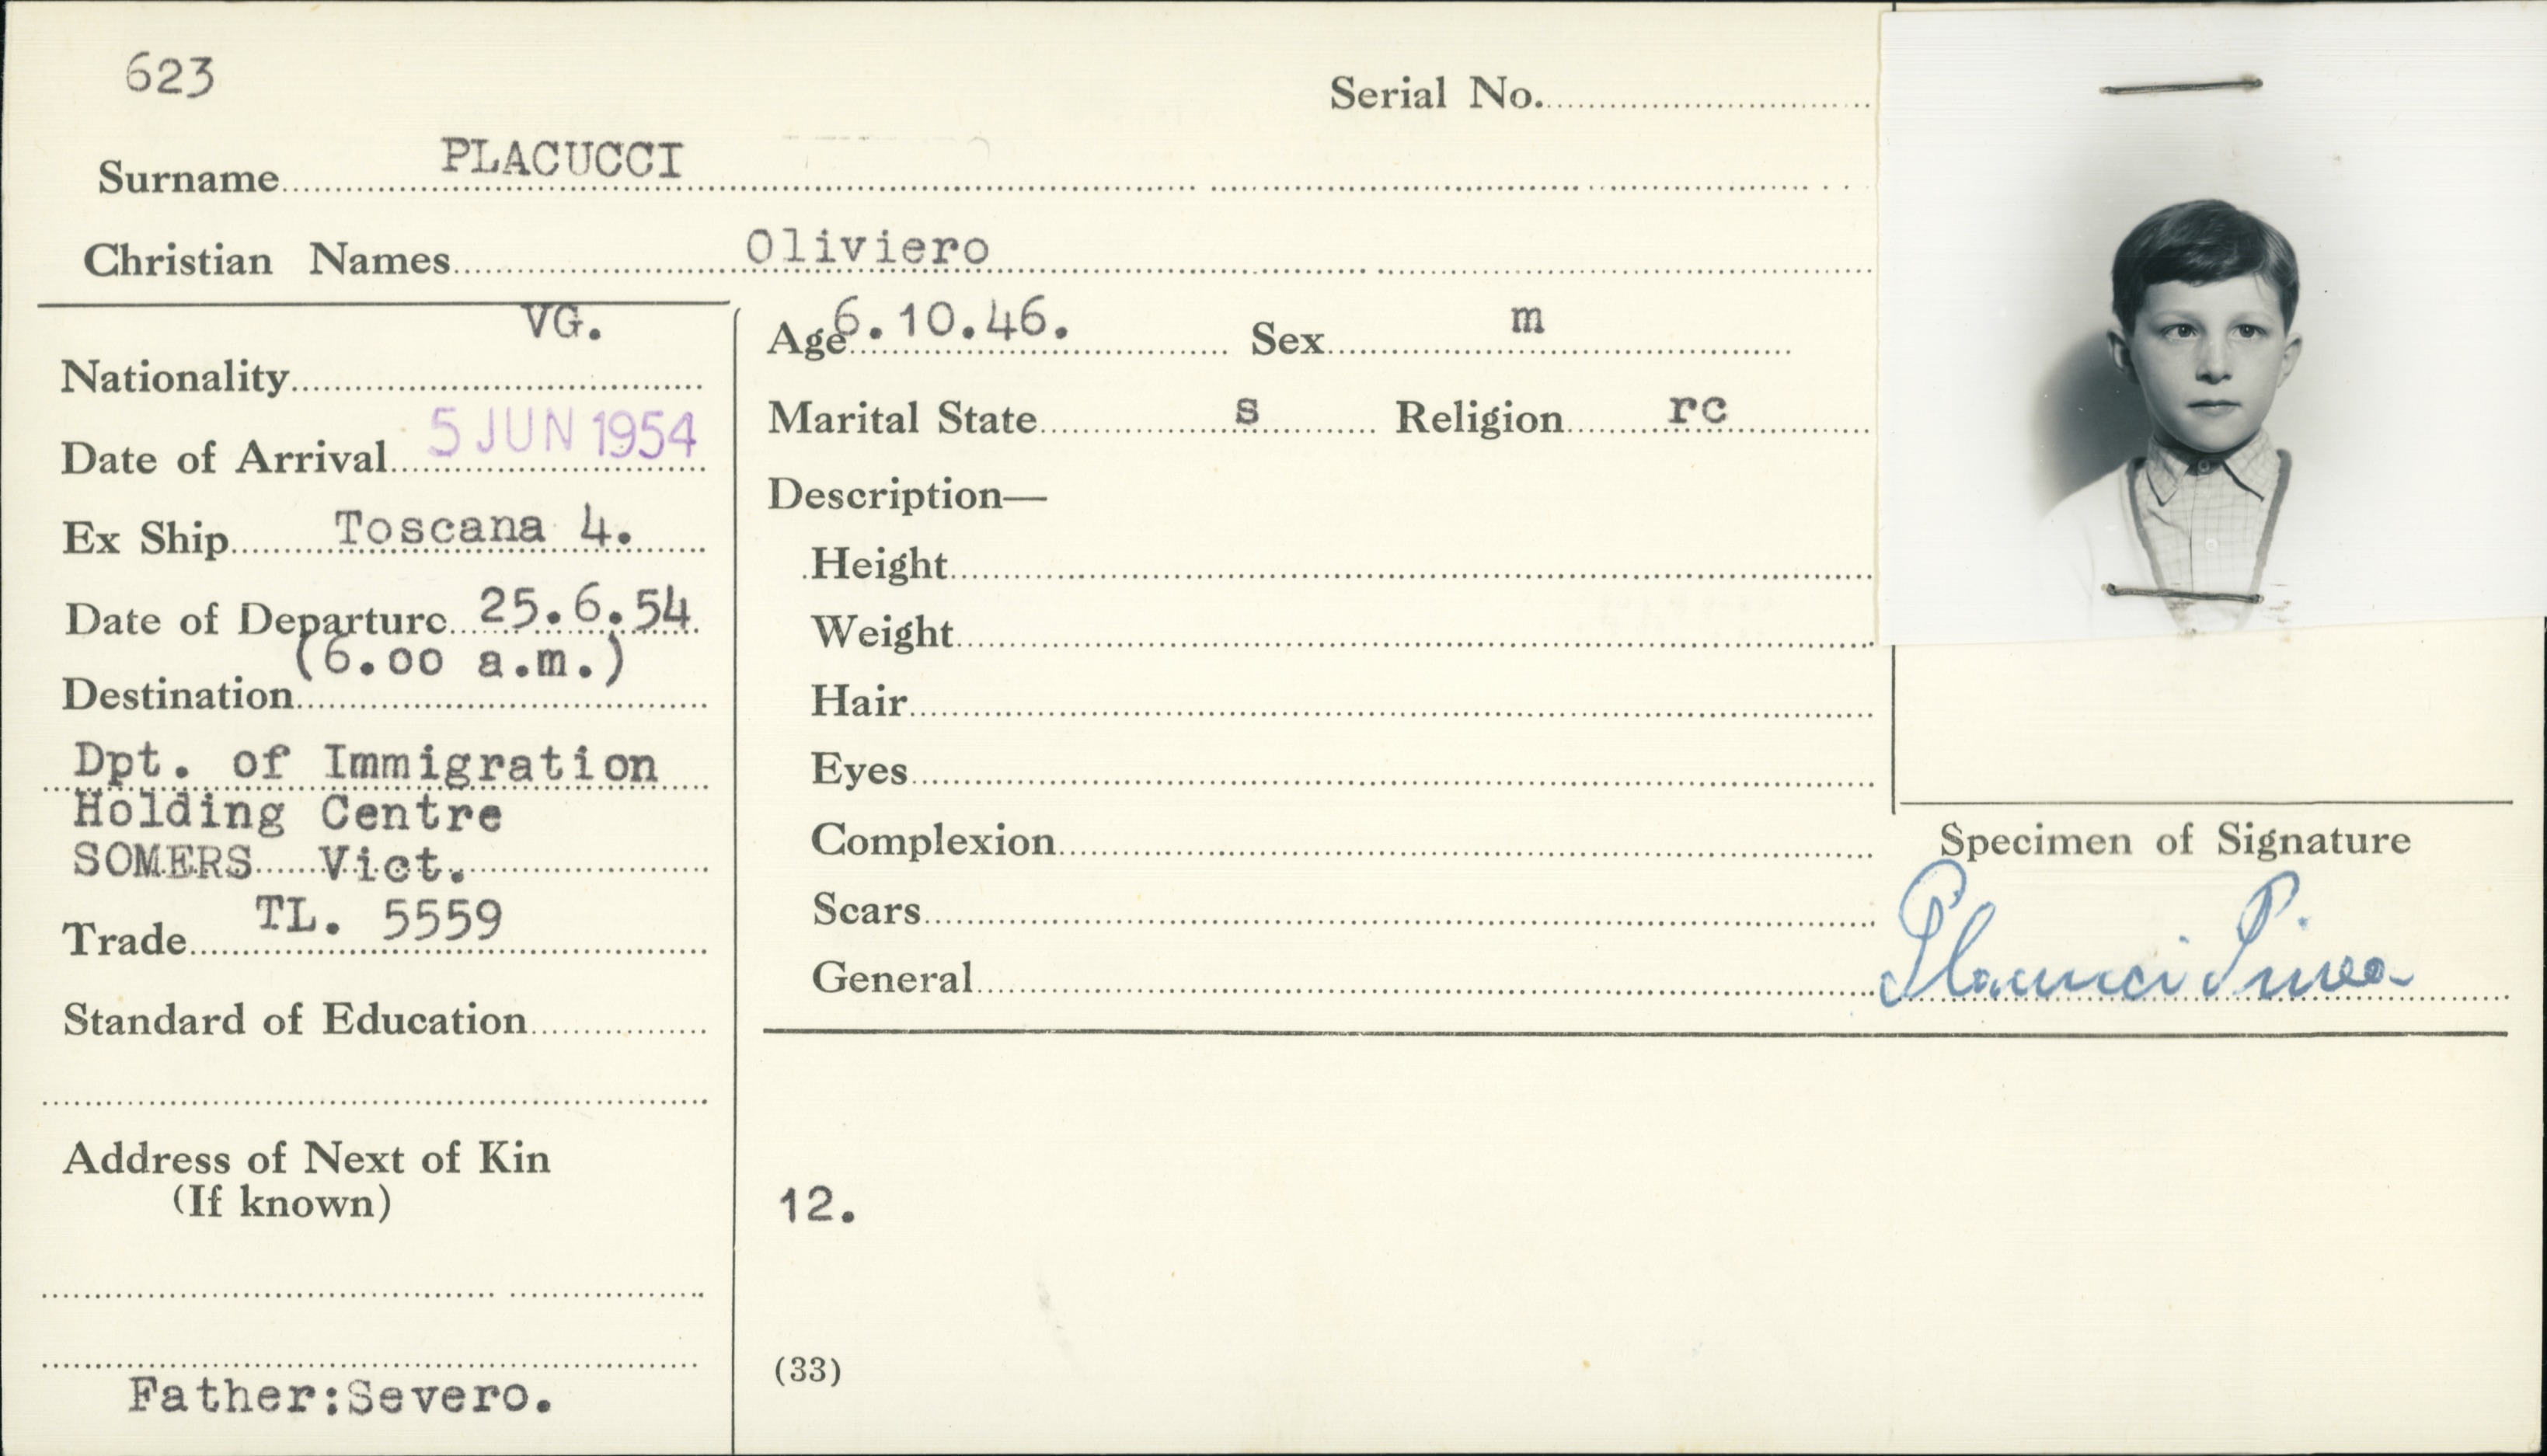 623
Serial No.
Surname PLACUCCI
Christian Names Oliviero
VG.
Nationality
Date of Arrival 5 JUN 1954
Ex Ship Toscana 4.
Date of Departure 25.6.54
(6.00 a.m.)
Destination
Dpt. of Immigration
Holding Centre
SOMERS Vict.
Trade TL. 5559
Standard of Education
Address of Next of Kin
(If known)
Father:Severo.
Age 6.10.46. Sex m
Marital State s Religion rc
Description—
Height
Weight
Hair
Eyes
Complexion
Scars
General
12.
(33)
Specimen of Signature
Placucci